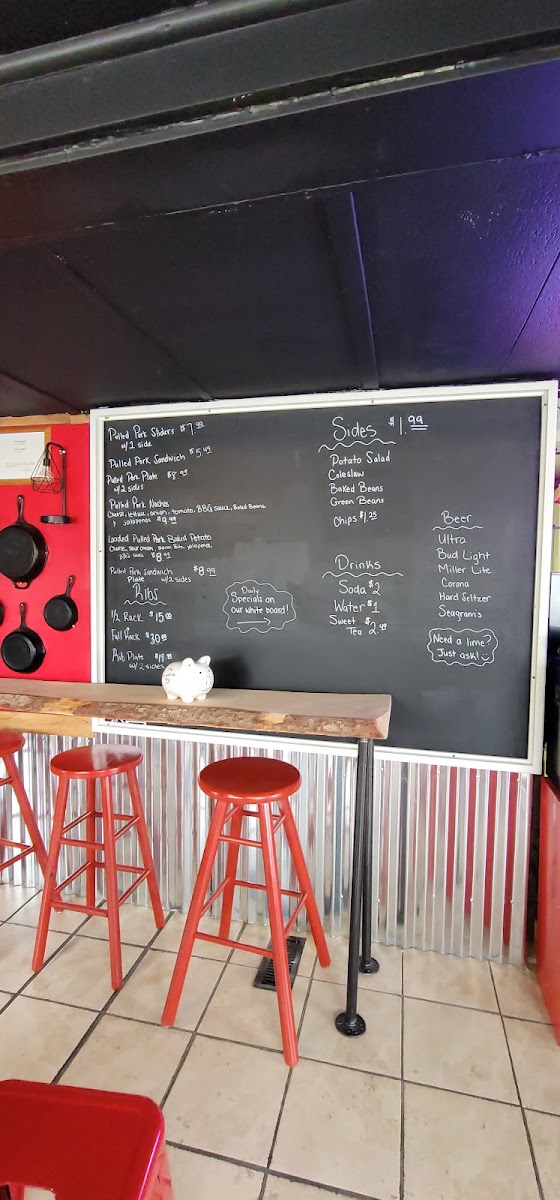 Pulled Pork Sliders $7.99
w/1 side
Pulled Pork Sandwich $5.49
Pulled Pork Plate $8.99
w/2 sides
Pulled Pork Nachos
Cheese, lettuce, onion, tomato, BBQ sauce, Baked Beans
+ jalapenos $9.99
Loaded Pulled Pork Baked Potato
Cheese, Sour cream, Bacon Bits, jalapenos,
BBQ sauce $8.99
Pulled Pork Sandwich $8.99
Plate w/2 sides
Ribs
1/2 Rack $15.00
Full Rack $30.00
Rib Plate
w/2 sides
Daily
Specials on
our white board!
Sides $1.99
Potato Salad
Coleslaw
Baked Beans
Green Beans
Chips $1.25
Drinks
Soda $2
Water $1
Sweet
Tea $2.49
Beer
Ultra
Bud Light
Miller Lite
Corona
Hard Seltzer
Seagram's
Need a lime?
Just ask!